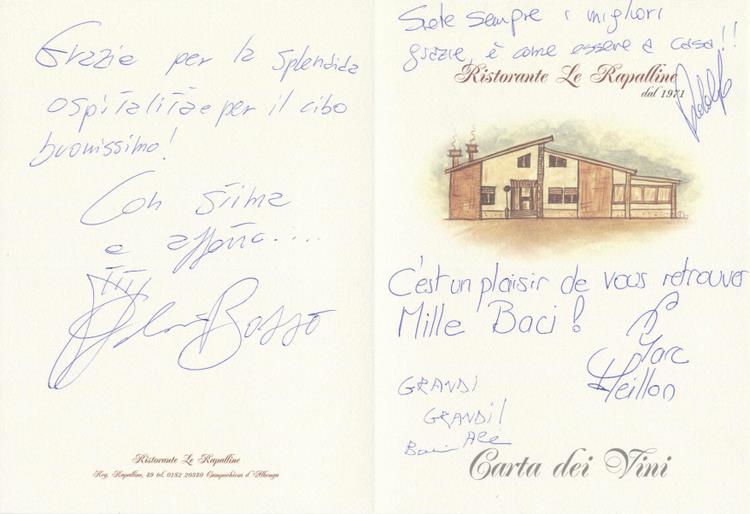 Grazie per la splendida
ospitalità e per il cibo
buonissimo!
Con stima
e affetto....
Bosso
Ristorante Le Rapalline
Reg. Rapalline, 49 tel. 0182 20380 Campochiesa d'Albenga
Siete sempre i migliori
grazie, è come essere a casa!!
Ristorante Le Rapalline
dal 1971
C'est un plaisir de vous retrouver
Mille Baci!
Marc
Meillon
GRANDI
GRANDI!
Baci Ale
Carta dei Vini